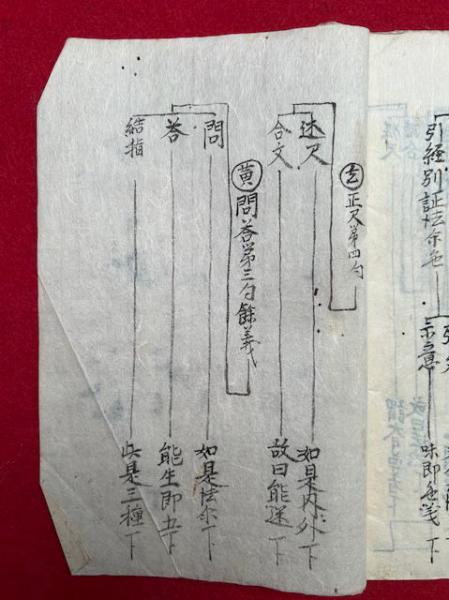 引経別証法尓色
示意
味即色
下
玄 正尺第四句
述尺 如是内外下
合文 故曰能迷下
黄 問答第三句餘義
問 如是法尓下
答 能生即五下
結指 此是三種下